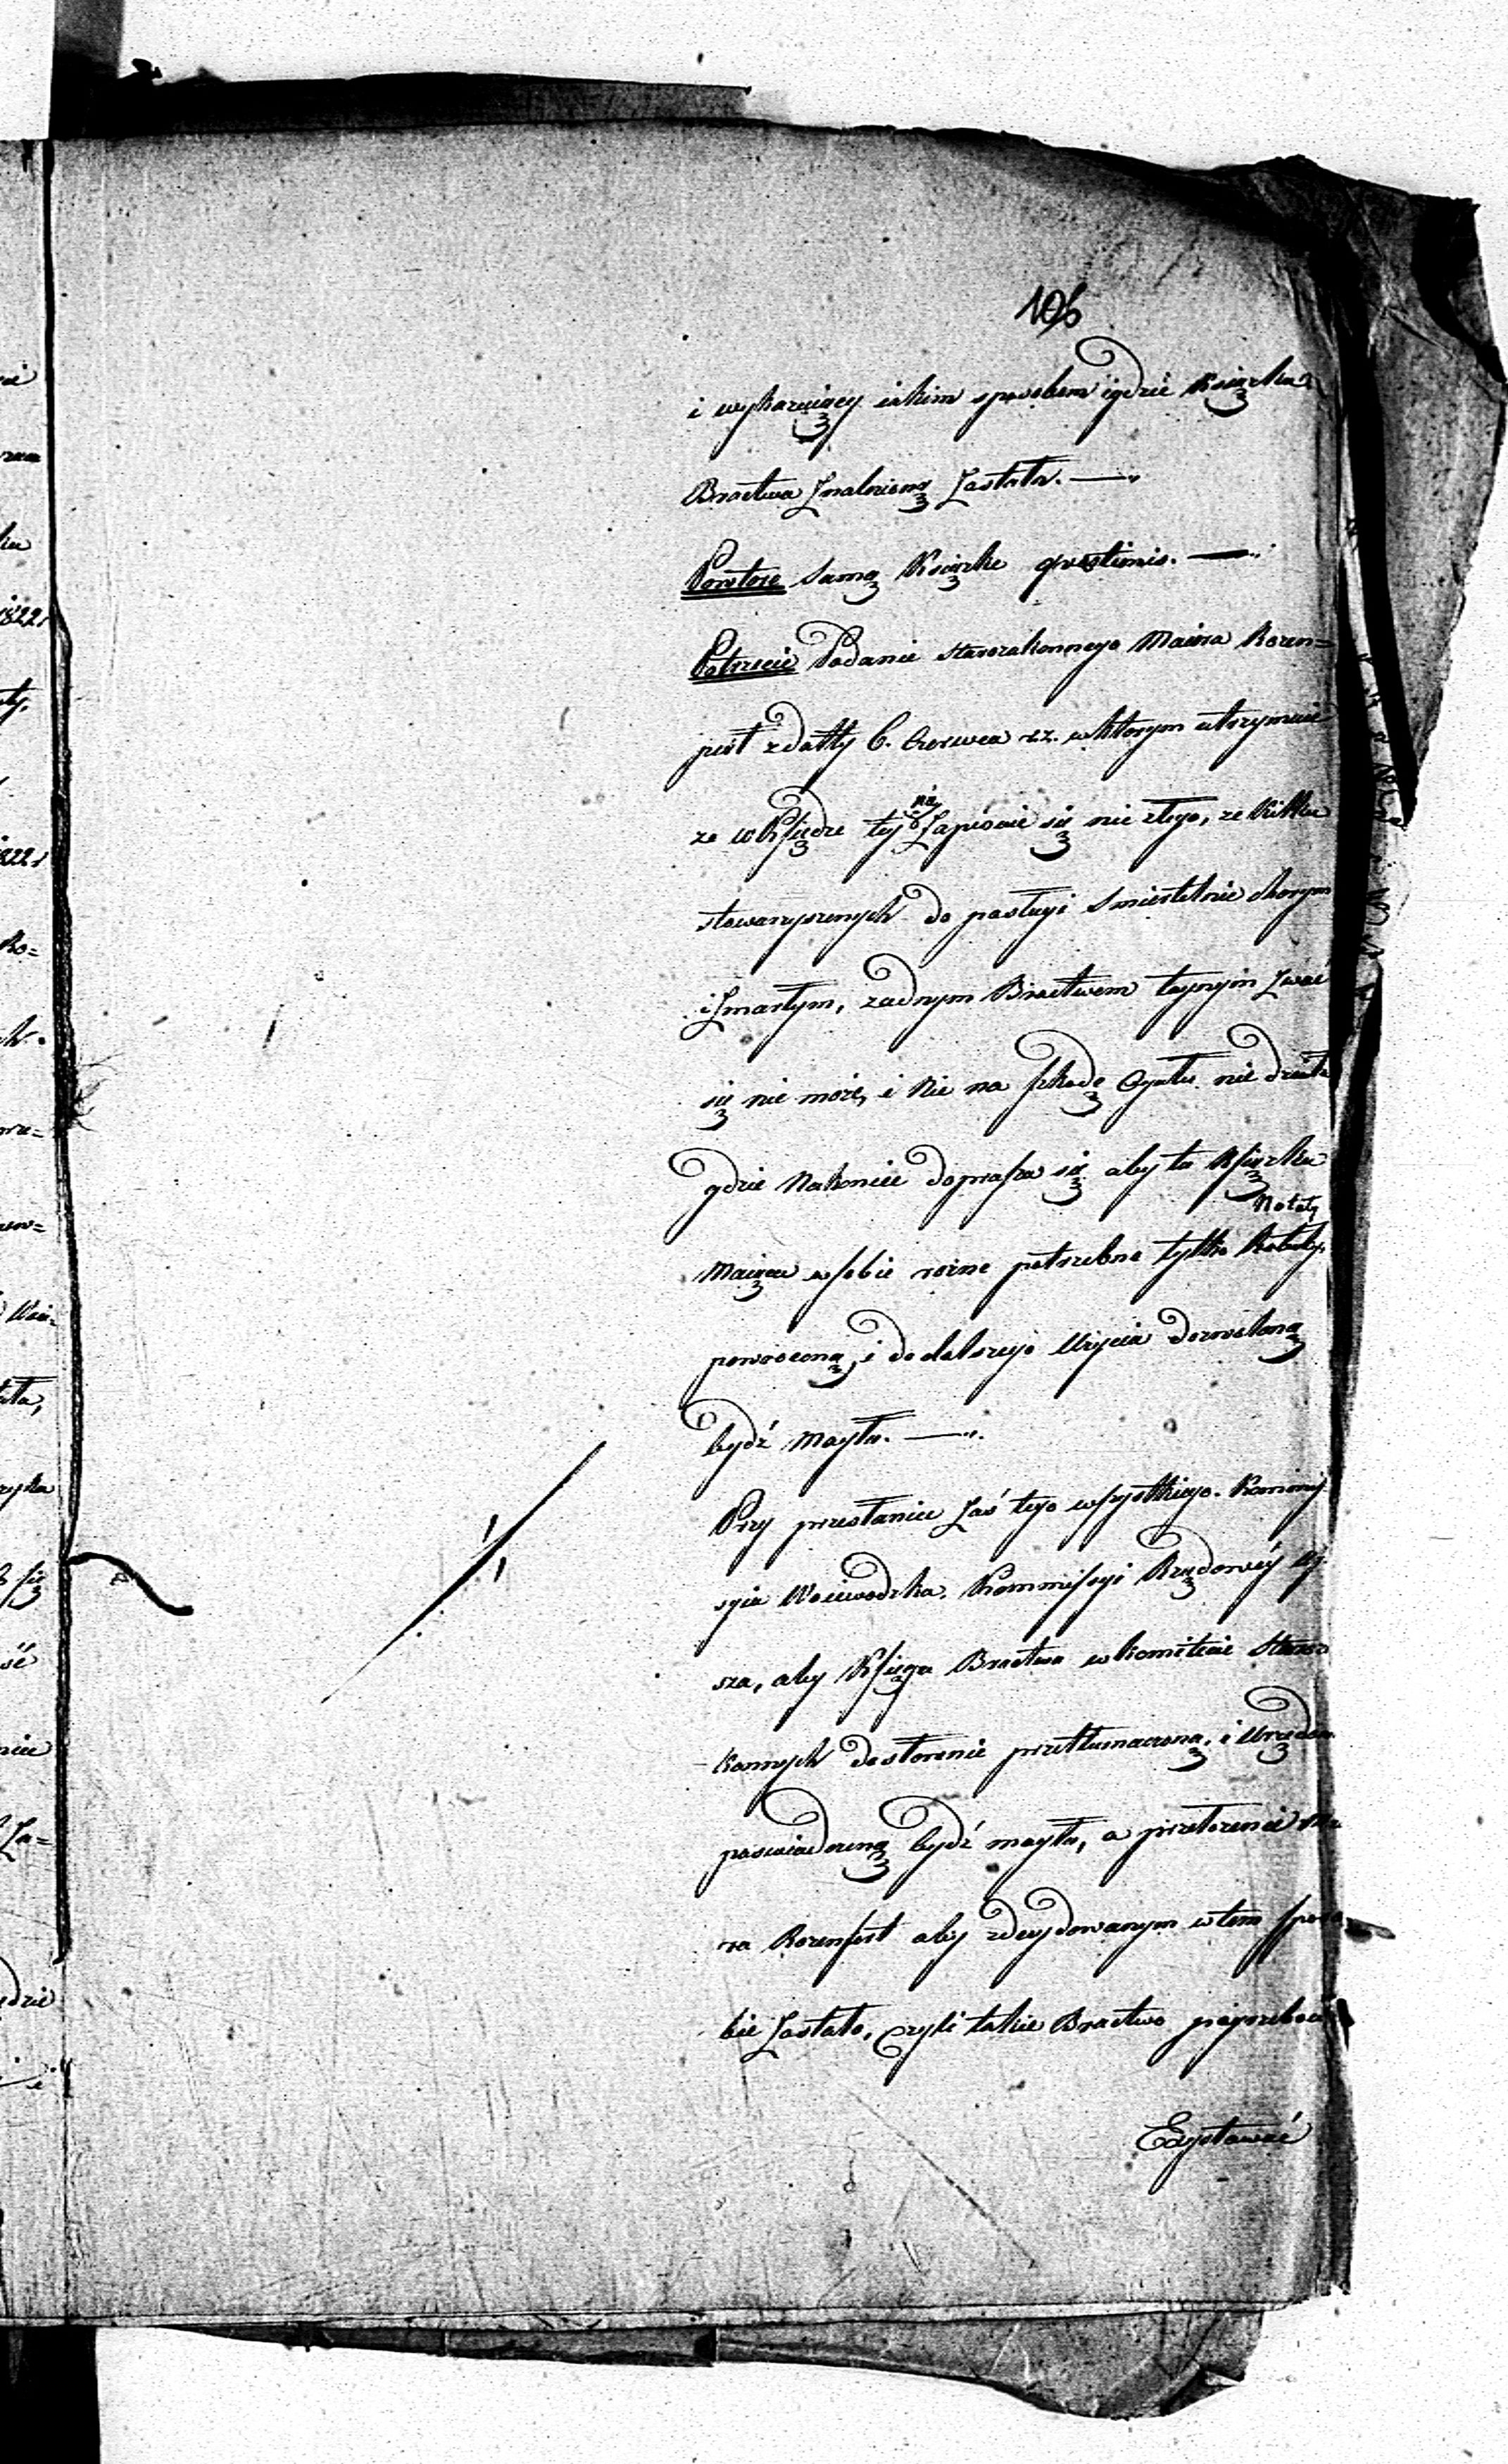 106
i wykazuiący iakim sposobem i gdzie Książka
Bractwa Znalezioną Zostałа. —
Powtore samą Książkę questionis. —
Potrzecie Podanie starozakonnego Maiera Rozen=
pest z datty 6. Czerwca r.z. w którym utrzymuie
ze w Księdze tey nic Zapisane się nie złego, ze kilku
stowarzyszonych do posługi smiertelnie chorym
i Zmarłym, zadnym Bractwem taynym Zwać
się nie może, i Nie na szkodę Ogułu nie działa
gdzie Nakoniec doprasza się aby ta Książka
Notaty
Maiąca w sobie rożne potrzebne tylko
powroconą, i do dalszego Użycia dozwoloną
bydź mogła. —
Przy przesłaniu Zaś tego wszystkiego. Kommis
syia Woiewodzka. Kommissyi Rządowey
sza, aby Księga Bractwa w komitecie Staroza
konnych dosłownie przetłumaczoną, i Urzędow
poswiadczoną bydź mogła, a przełożenie Ma
ra Rozenpest aby zdecydowanym w tem sposo
bie Zostało, Czyli takie Bractwo pogrzebowe
Exystować